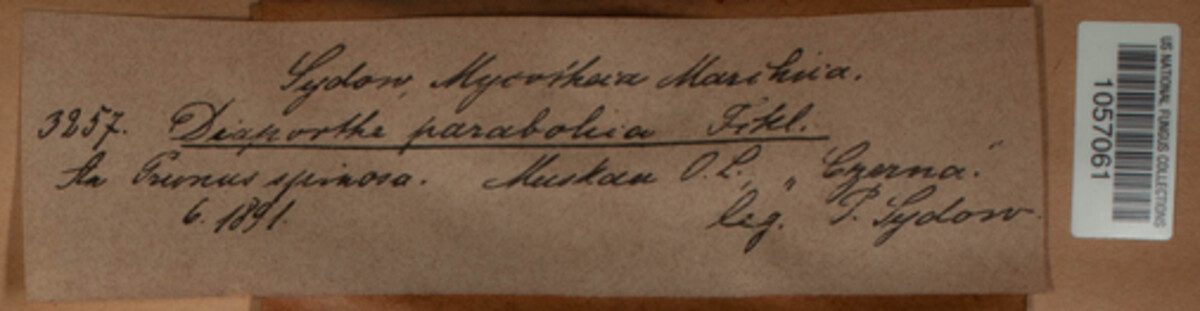 Sydow, Mycotheca Marchica.
3257. Diaporthe parabolica Fckl.
An Prunus spinosa. Muskau O. L., „Czerna“
6. 1891. leg. P. Sydow.
US NATIONAL FUNGUS COLLECTIONS
1057061